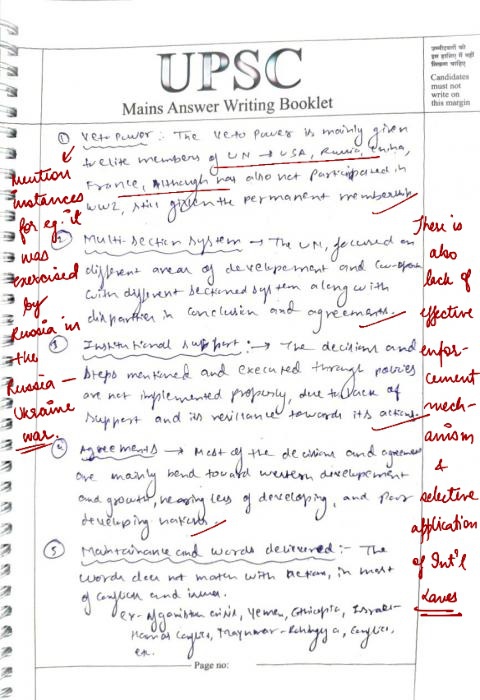 उम्मीदवारों को
इस हाशिए में नहीं
लिखना चाहिए
Candidates
must not
write on
this margin
UPSC
Mains Answer Writing Booklet
① Veto Power : The Veto Power is mainly given
to elite members of UN → USA, Russia, China,
France, Although has also not participated in
WW2, still given the permanent membership
② Multi-section system → The UN, focused on
different areas of developement and
with different sectioned system along with
disparities in conclusion and agreements.
③ Institutional support : → The decisions and
steps mentioned and executed through policies
are not implemented properly, due to lack of
support and its towards its actions.
④ Agreements → Most of the decisions and agreement
are mainly bend toward western developement
and growth, less of developing, and
developing nations.
⑤ Maintainance and words delivered :- The
words does not match with action, in most
of conflicts and
ex- Afganistan crisis, Yemen, Ethiopia, Israel-
Hamas Conflict, Conflict,
etc.
Mention
instances
for eg. it
was
exercised
by
Russia in
the
Russia –
Ukraine
war.
There is
also
lack of
effective
enfor-
cement
mech-
anism
&
selective
application
of Int'l
Laws
Page no: